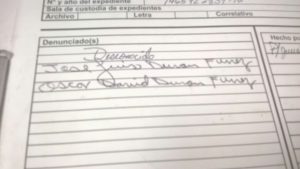 N° y año del expediente
Sala de custodia de expedientes
Archivo Letra Correlativo
Denunciado(s)
Desconocido
José Luis Duran Funez
Oscar David Duran Funez
Hecho